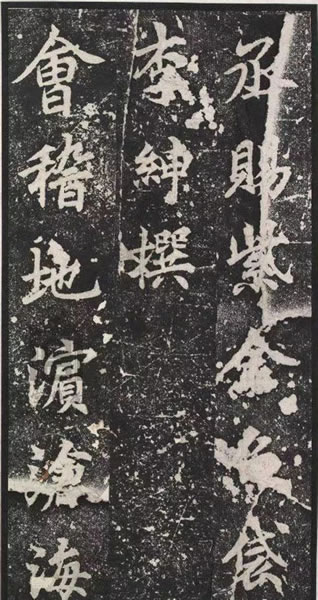 丞賜紫金魚袋
李紳撰
會稽地濵滄海